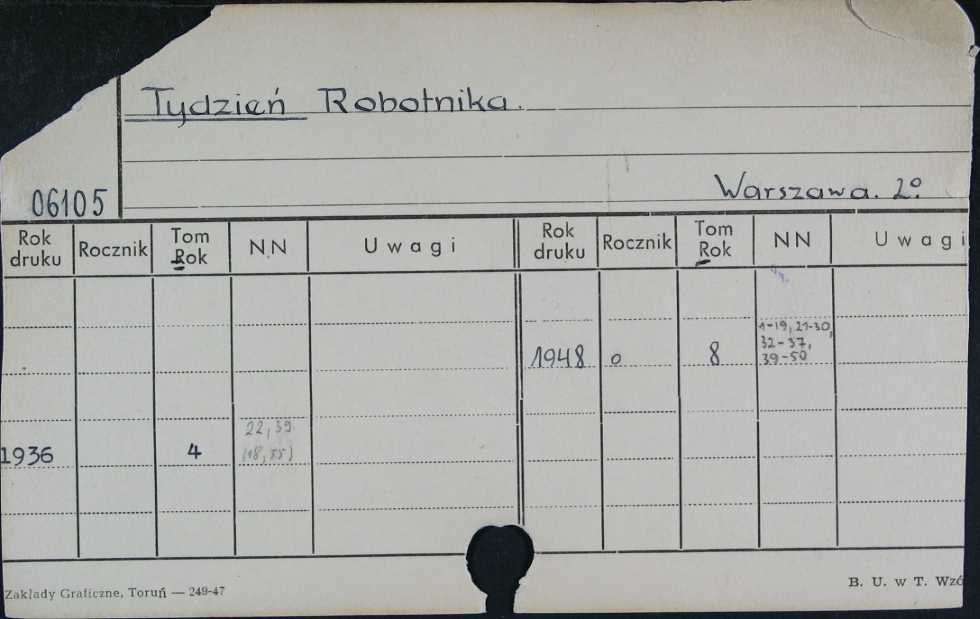 Tydzień Robotnika.
06105
Warszawa. 2°.
Rok druku Rocznik Tom Rok NN Uwagi Rok druku Rocznik Tom Rok NN Uwagi
1948 o 8 1-19, 21-30,
32-37,
39-50
1936 4 22, 39
(18, 55)
Zakłady Graficzne, Toruń — 249-47
B. U. w T. Wzó